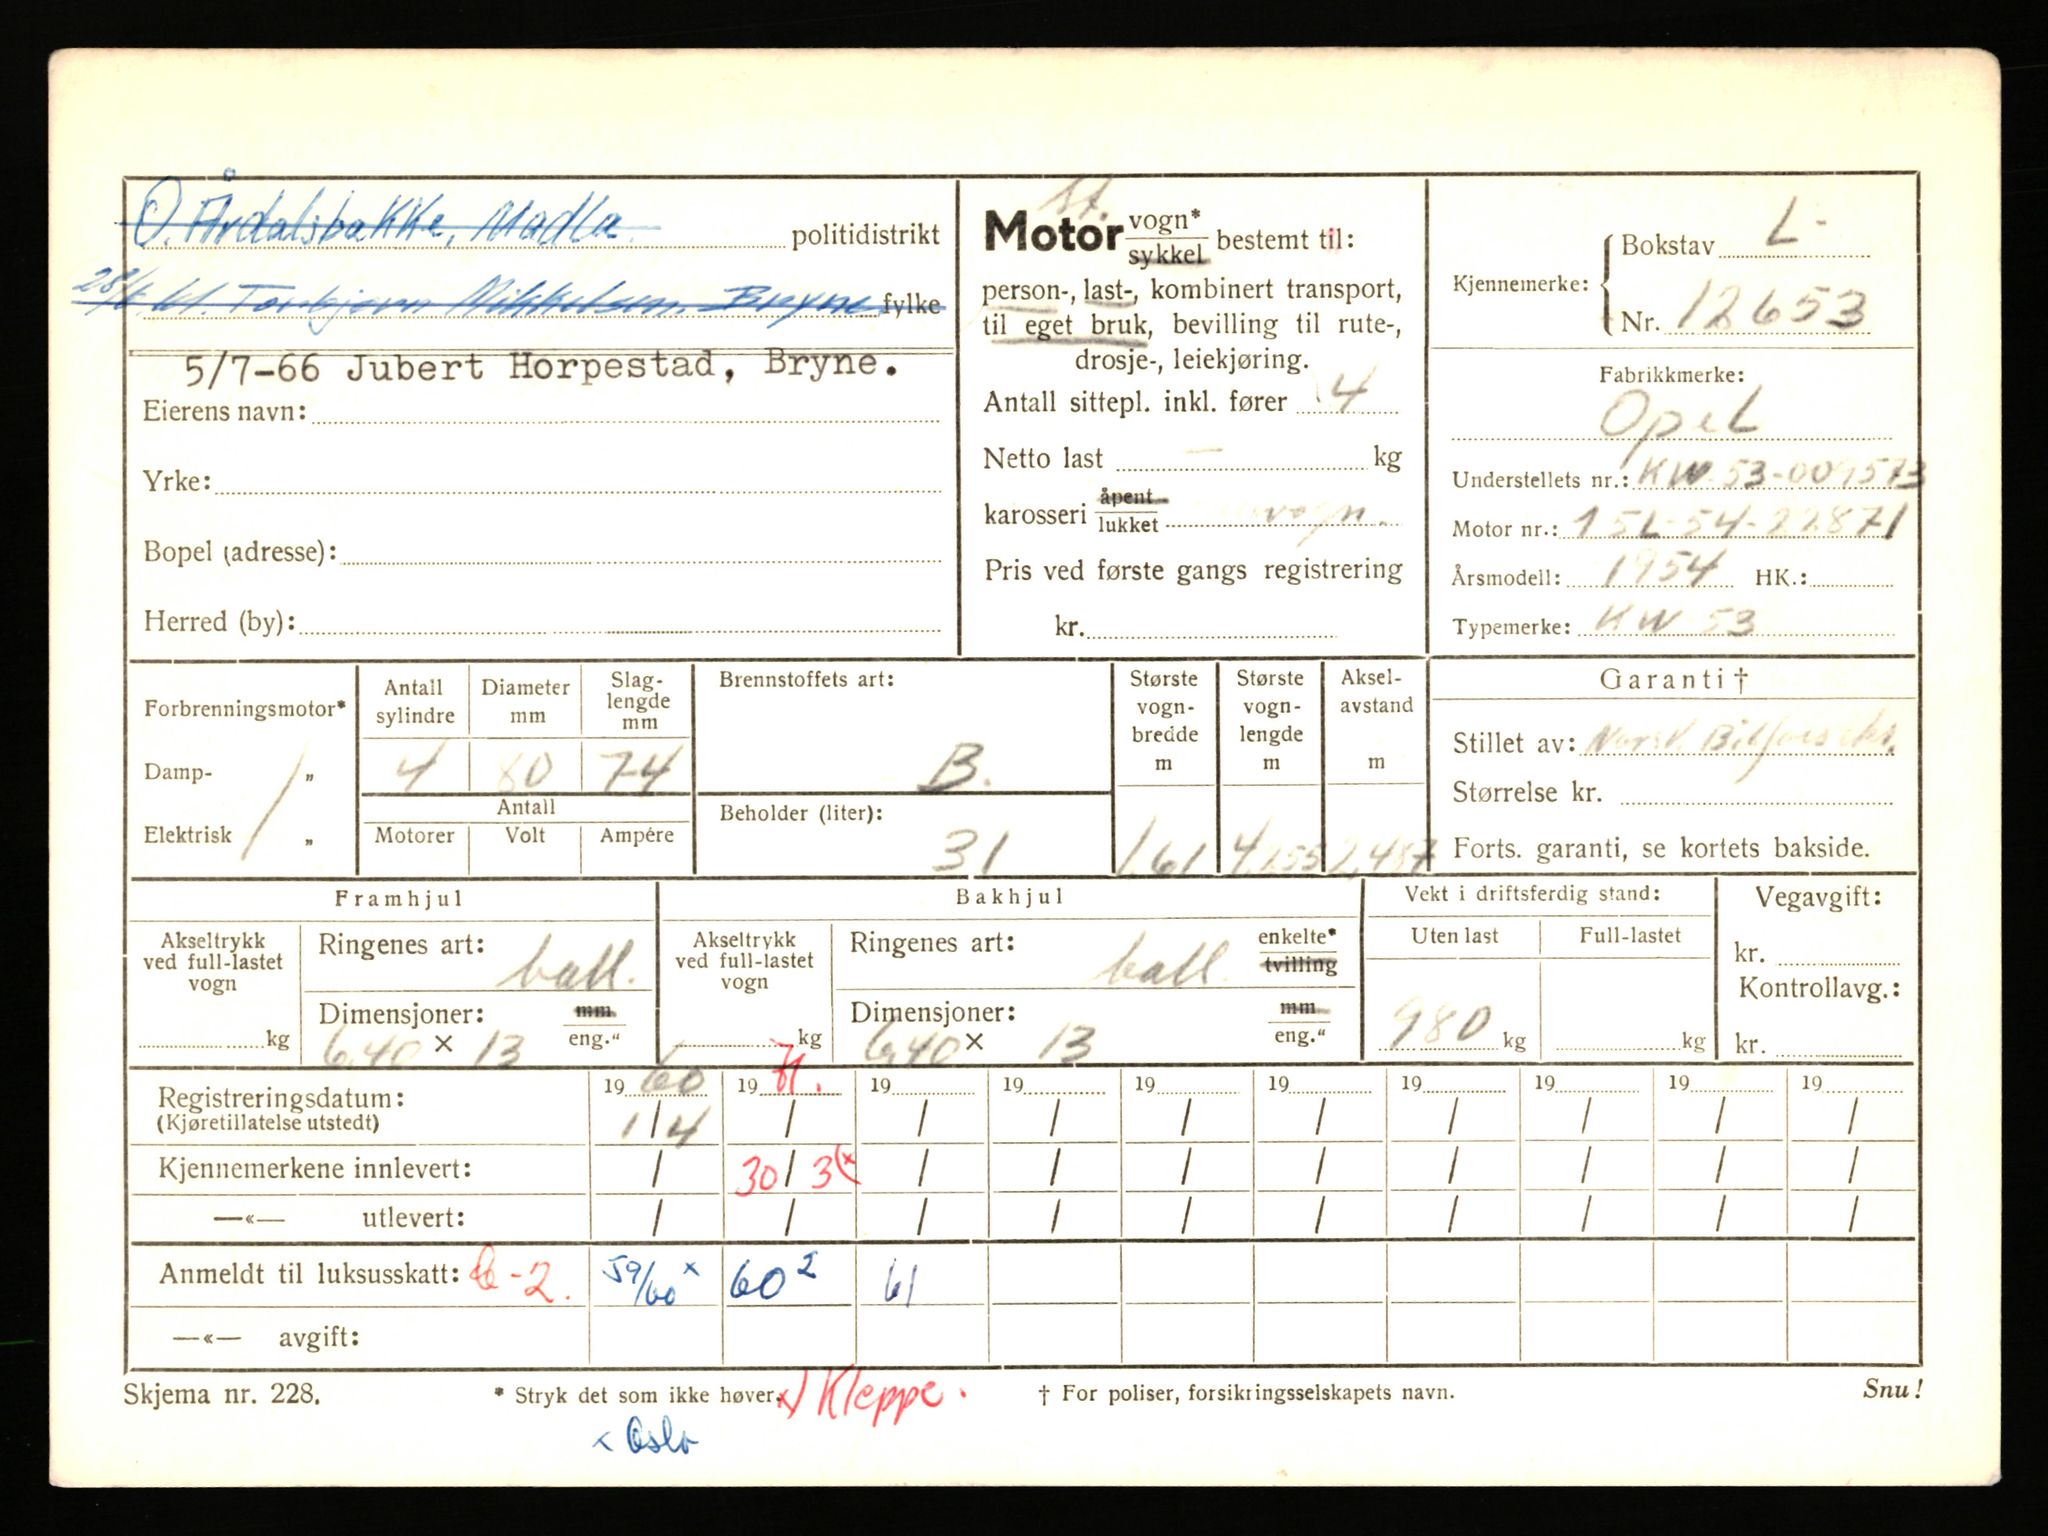 O. Årdalsbakke, Madla politidistrikt
28/6.61. Torbjørn Mikkelsen. Bryne fylke
5/7-66 Jubert Horpestad, Bryne.
Eierens navn:
Yrke:
Bopel (adresse):
Herred (by):
st.
Motor vogn* sykkel bestemt til:
person-, last-, kombinert transport,
til eget bruk, bevilling til rute-,
drosje-, leiekjøring.
Antall sittepl. inkl. fører 4
Netto last — kg
karosseri åpent lukket
Pris ved første gangs registrering
kr.
Kjennemerke: Bokstav L-
Nr. 12653
Fabrikkmerke:
Opel
Understellets nr.: KW-53-009573
Motor nr.: 15L-54-22871
Årsmodell: 1954 HK.:
Typemerke: KW 53
Forbrenningsmotor*
Damp- „
Elektrisk „
Antall sylindre
4
Diameter mm
80
Slag-
lengde
mm
74
Antall
Motorer Volt Ampére
Brennstoffets art:
B.
Beholder (liter):
31
Største
vogn-
bredde
m
1,61
Største
vogn-
lengde
m
4,255
Aksel-
avstand
m
2,487
Garanti †
Stillet av: Norsk Bilforsikr.
Størrelse kr.
Forts. garanti, se kortets bakside.
Framhjul
Akseltrykk
ved full-lastet
vogn
kg
Ringenes art:
ball.
Dimensjoner: mm
6,40 × 13 eng."
Bakhjul
Akseltrykk
ved full-lastet
vogn
kg
Ringenes art: enkelte*
ball. tvilling
Dimensjoner: mm
6,40 × 13 eng."
Vekt i driftsferdig stand:
Uten last Full-lastet
980 kg kg
Vegavgift:
kr.
Kontrollavg.:
kr.
19 60 19 71. 19 19 19 19 19 19 19 19
Registreringsdatum: 1/4 / / / / / / / / /
(Kjøretillatelse utstedt)
Kjennemerkene innlevert: / 30/3 (x / / / / / / / /
—«— utlevert: / / / / / / / / / /
Anmeldt til luksusskatt: -2. 59/60 x 60 2 61
—«— avgift:
Skjema nr. 228. * Stryk det som ikke høver. x) Kleppe. † For poliser, forsikringsselskapets navn. Snu!
x Oslo